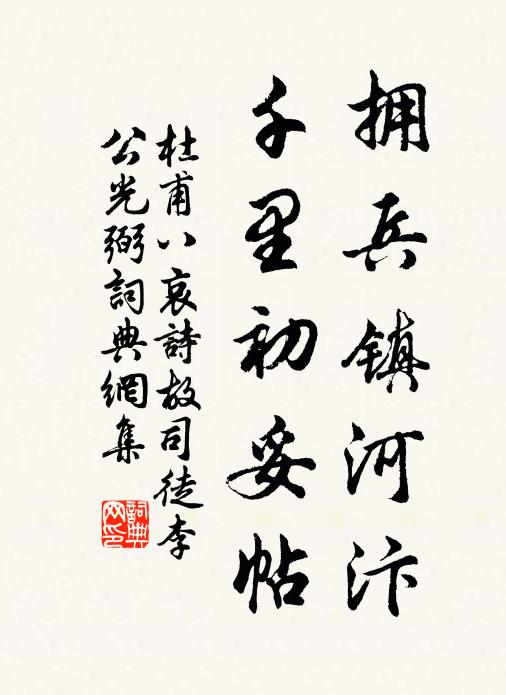 拥兵镇河汴
千里初妥帖
杜甫八哀詩故司徒李
公光弼詞典網集
詞典
网印